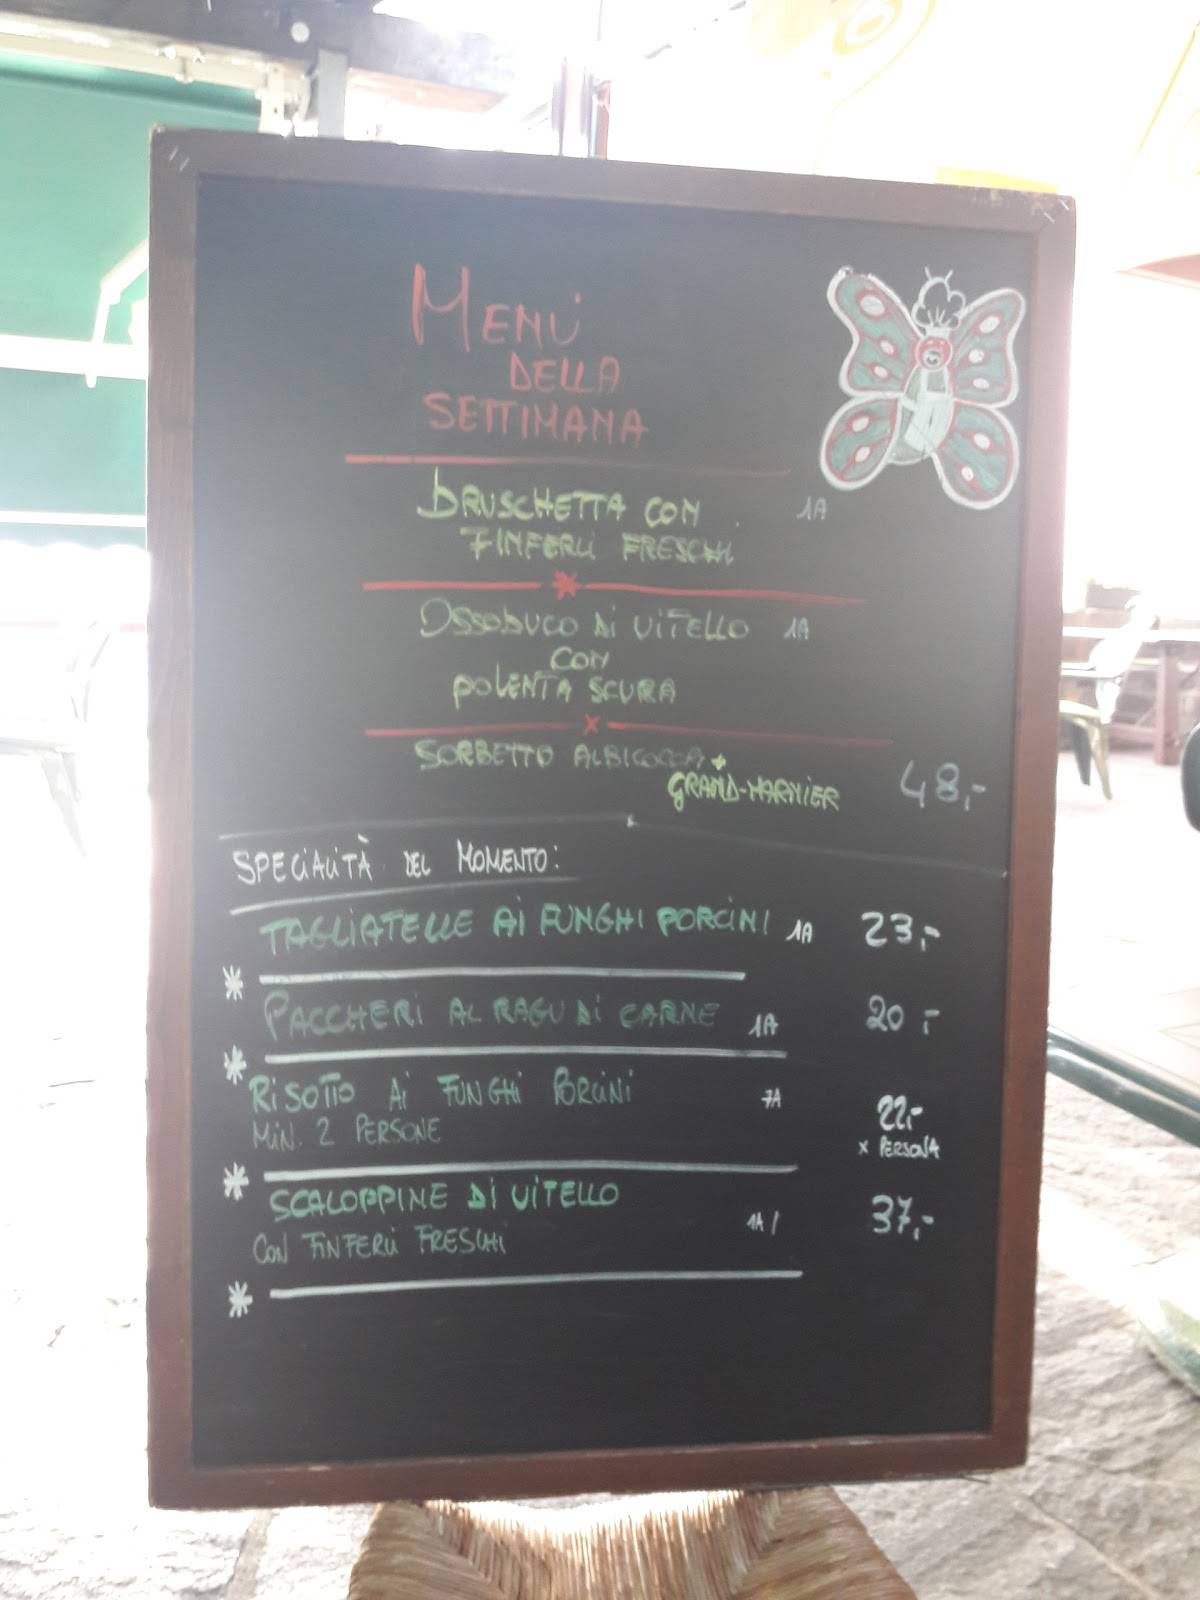 MENÙ
DELLA
SETTIMANA
BRUSCHETTA CON 1A
FINFERLI FRESCHI
OSSOBUCO DI VITELLO 1A
CON
POLENTA SCURA
SORBETTO ALBICOCCA +
GRAND-MARNIER 48,-
SPECIALITÀ DEL MOMENTO:
TAGLIATELLE AI FUNGHI PORCINI 1A 23,-
* PACCHERI AL RAGU DI CARNE 1A 20,-
* RISOTTO AI FUNGHI PORCINI 7A 22,-
MIN. 2 PERSONE x PERSONA
* SCALOPPINE DI VITELLO 37,-
CON FINFERLI FRESCHI 1A /
*